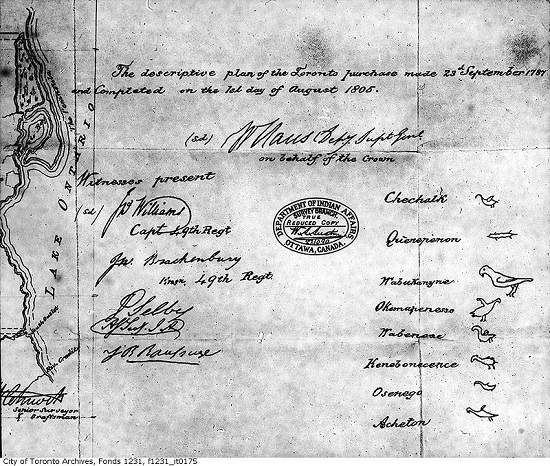 The descriptive plan of the Toronto purchase made 23d September 1787
and Completed on the 1st day of August 1805.
(sd) W Claus Depy Supt Genl
on behalf of the Crown
Witnesses present
(sd) Williams
Capt 49th Regt
Jno Brackenbury
49th Regt.
P Selby
J B Rousseau
DEPARTMENT OF INDIAN AFFAIRS
SURVEY BRANCH
TRUE
REDUCED COPY
OTTAWA, CANADA.
Chechalk
Queneperion
Wabukanyne
Okemapenesse
Wabenose
Kenebonecence
Osenego
Acheton
LAKE ONTARIO
Riv. Credit
Senior Surveyor
& Draftsman
City of Toronto Archives, Fonds 1231, f1231_it0175